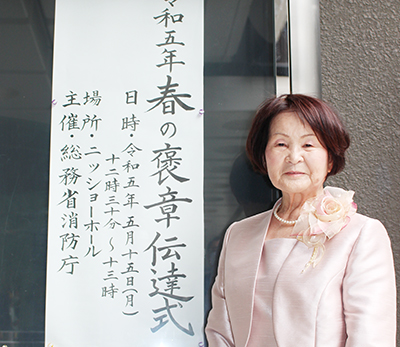 令和五年春の褒章伝達式
日時・令和五年五月十五日(月)
十二時三十分～十三時
場所・ニッショーホール
主催・総務省消防庁